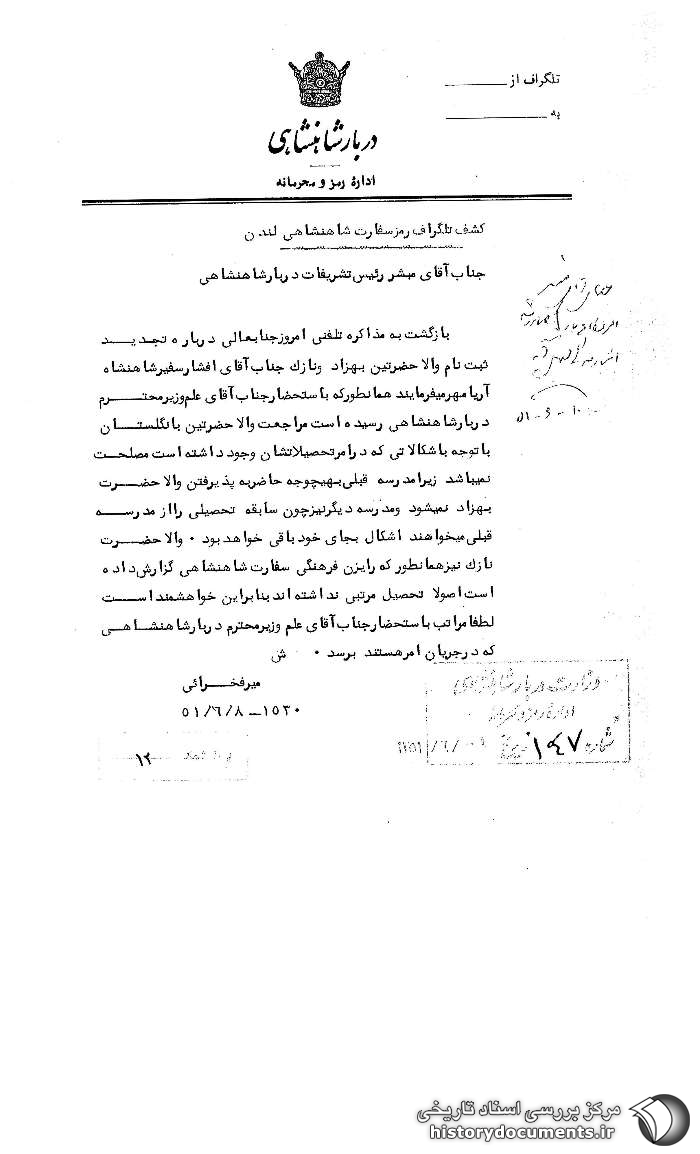 تلگراف از
به
دربار شاهنشاهی
ادارهٔ رمز و محرمانه
کشف تلگراف رمز سفارت شاهنشاهی لندن
جناب آقای مبشر رئیس تشریفات دربار شاهنشاهی
بازگشت به مذاکره تلفنی امروز جنابعالی درباره تجدید
ثبت نام والاحضرتین بهزاد و نازك جناب آقای افشار سفیر شاهنشاه
آریا مهر میفرمایند همانطور که با ستحضار جناب آقای علم وزیر محترم
دربار شاهنشاهی رسیده است مراجعت والاحضرتین بانگلستان
با توجه باشکالاتی که در امر تحصیلاتشان وجود داشته است مصلحت
نمیباشد زیرا مدرسه قبلی بهیچوجه حاضر به پذیرفتن والاحضرت
بهزاد نمیشود ومدرسه دیگر نیز چون سابقه تحصیلی را از مدرسه
قبلی میخواهند اشکال بجای خود باقی خواهد بود ۰ والاحضرت
نازك نیز همانطور که رایزن فرهنگی سفارت شاهنشاهی گزارش داده
است اصولا تحصیل مرتبی نداشته اند بنابراین خواهشمند است
لطفا مراتب با ستحضار جناب آقای علم وزیر محترم دربار شاهنشاهی
که در جریان امر هستند برسد ۰ ش
میرفخرائی
۱۵۳۰ــ ۵۱/۶/۸
وزارت دربار شاهنشاهی
شماره ۱۴۷
۱۲
مرکز بررسی اسناد تاریخی
historydocuments.ir